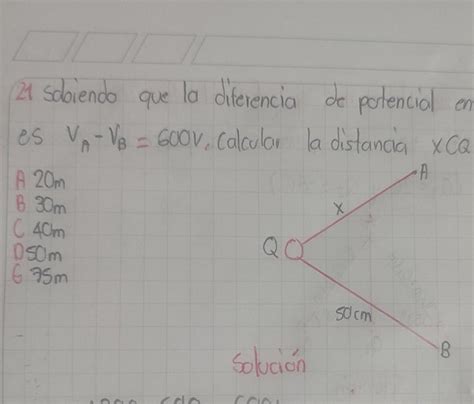 21 sabiendo que la diferencia de potencial en
es VA - VB = 600V, Calcular la distancia x(Q
A 20m
B 30m
C 40m
D 50m
E 75m
A
x
Q
50cm
B
solución